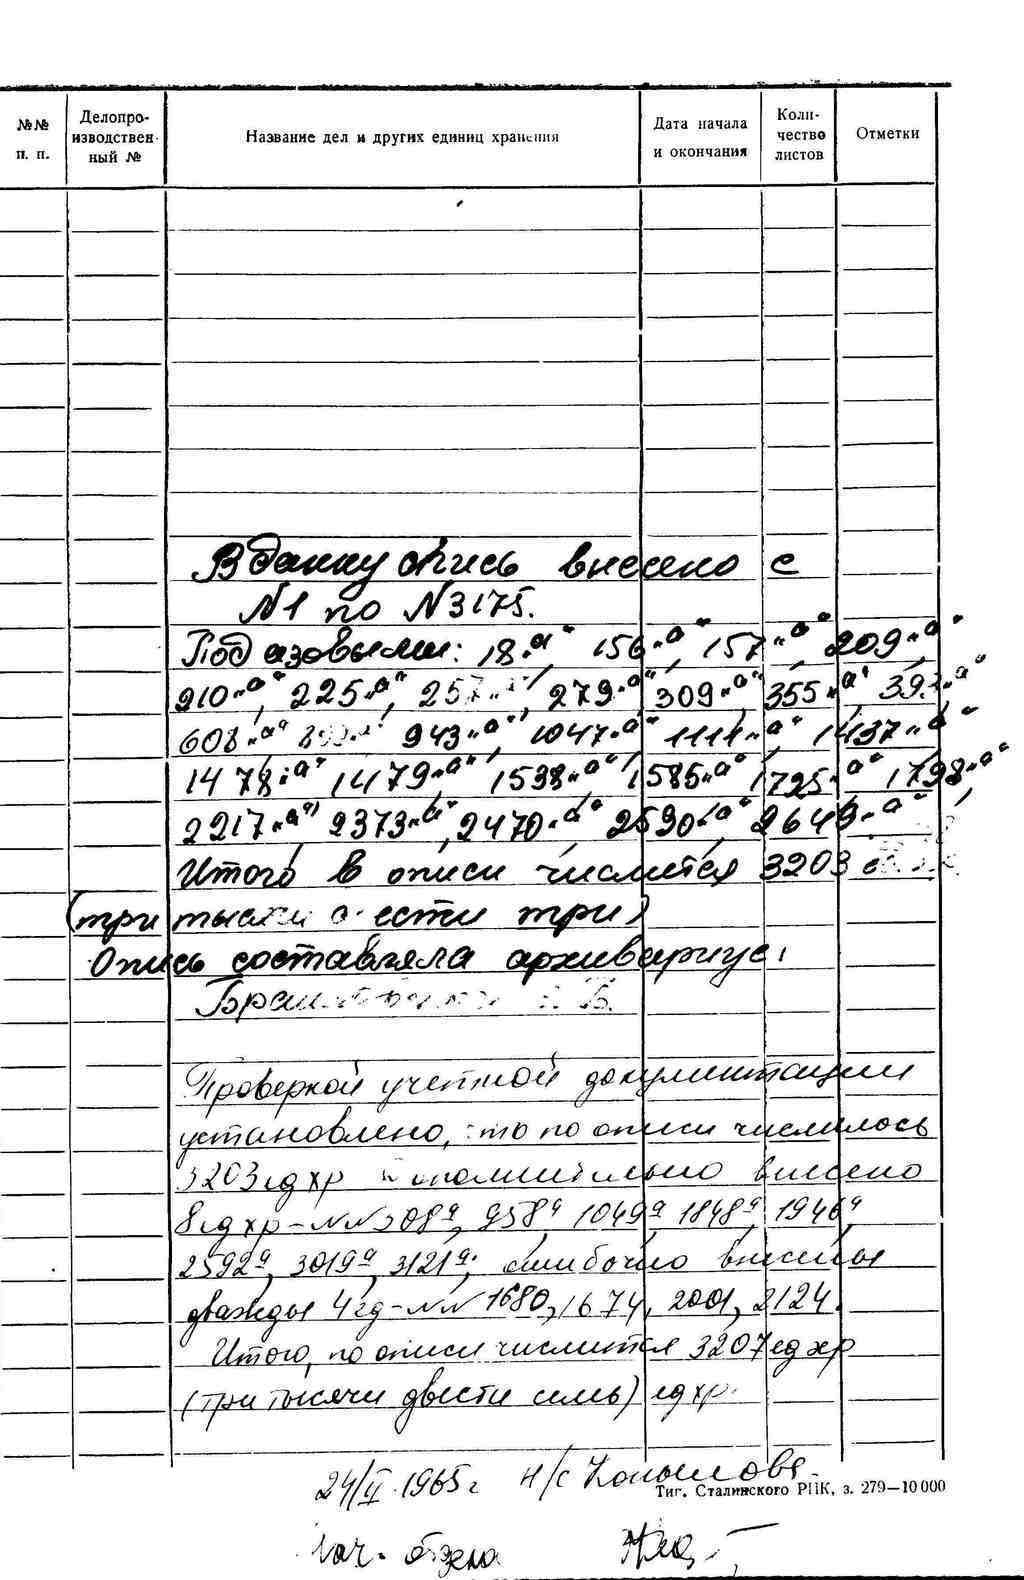 №№ п. п.
Делопро-
изводствен-
ный №
Название дел и других единиц хранения
Дата начала
и окончания
Коли-
чество
листов
Отметки
В данну опись внесено с
№1 по №3175.
Под азовыми: 18 „а“ 156 „а“, 157 „а“, 209 „а“
910 „а“, 225 „а“, 257 279 „а“, 309 „а“, 355 „а“, 393 „а“
608 „а“ 943 „а“, 1047 „а“ 1111 „а“, 1437 „а“
1478 „а“, 1479 „а“, 1538 „а“, 1585 „а“, 1725 „а“, 1798 „а“,
2217 „а“, 2373 „а“, 2470 „а“, 2590 „а“, 2649 „а“
Итого в описи числится 3203
(три три)
Опись составляла архивариус:
Проверкой учетной документации
установлено, что по описи числилось
3203 ед хр дополнительно внесено
8 ед хр – №№ 958а, 1049а, 1848а, 1946а,
2592а, 3019а, 3121а; ошибочно внесены
дважды 4 ед – №№ 1680, 1674, 2001, 2124.
Итого, по описи числится 3207 ед хр
(три тысячи двести семь) ед хр.
24/II 1965 г н/с Копылова
Тип. Сталинского РПК, з. 279—10 000
Нач. отдела